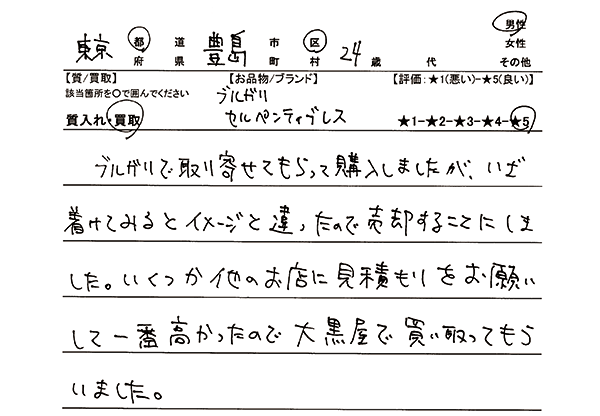 東京 都 道 府 県 豊島 市 区 町 村 24 歳 代 男性 女性 その他
【質/買取】 【お品物/ブランド】 【評価：★1(悪い)-★5(良い)】
該当箇所を○で囲んでください ブルガリ
質入れ・買取 セルペンティブレス ★1-★2-★3-★4-★5
ブルガリで取り寄せてもらって購入しましたが、いざ
着けてみるとイメージと違ったので売却することにしま
した。いくつか他のお店に見積もりをお願い
して一番高かったので大黒屋で買い取ってもら
いました。